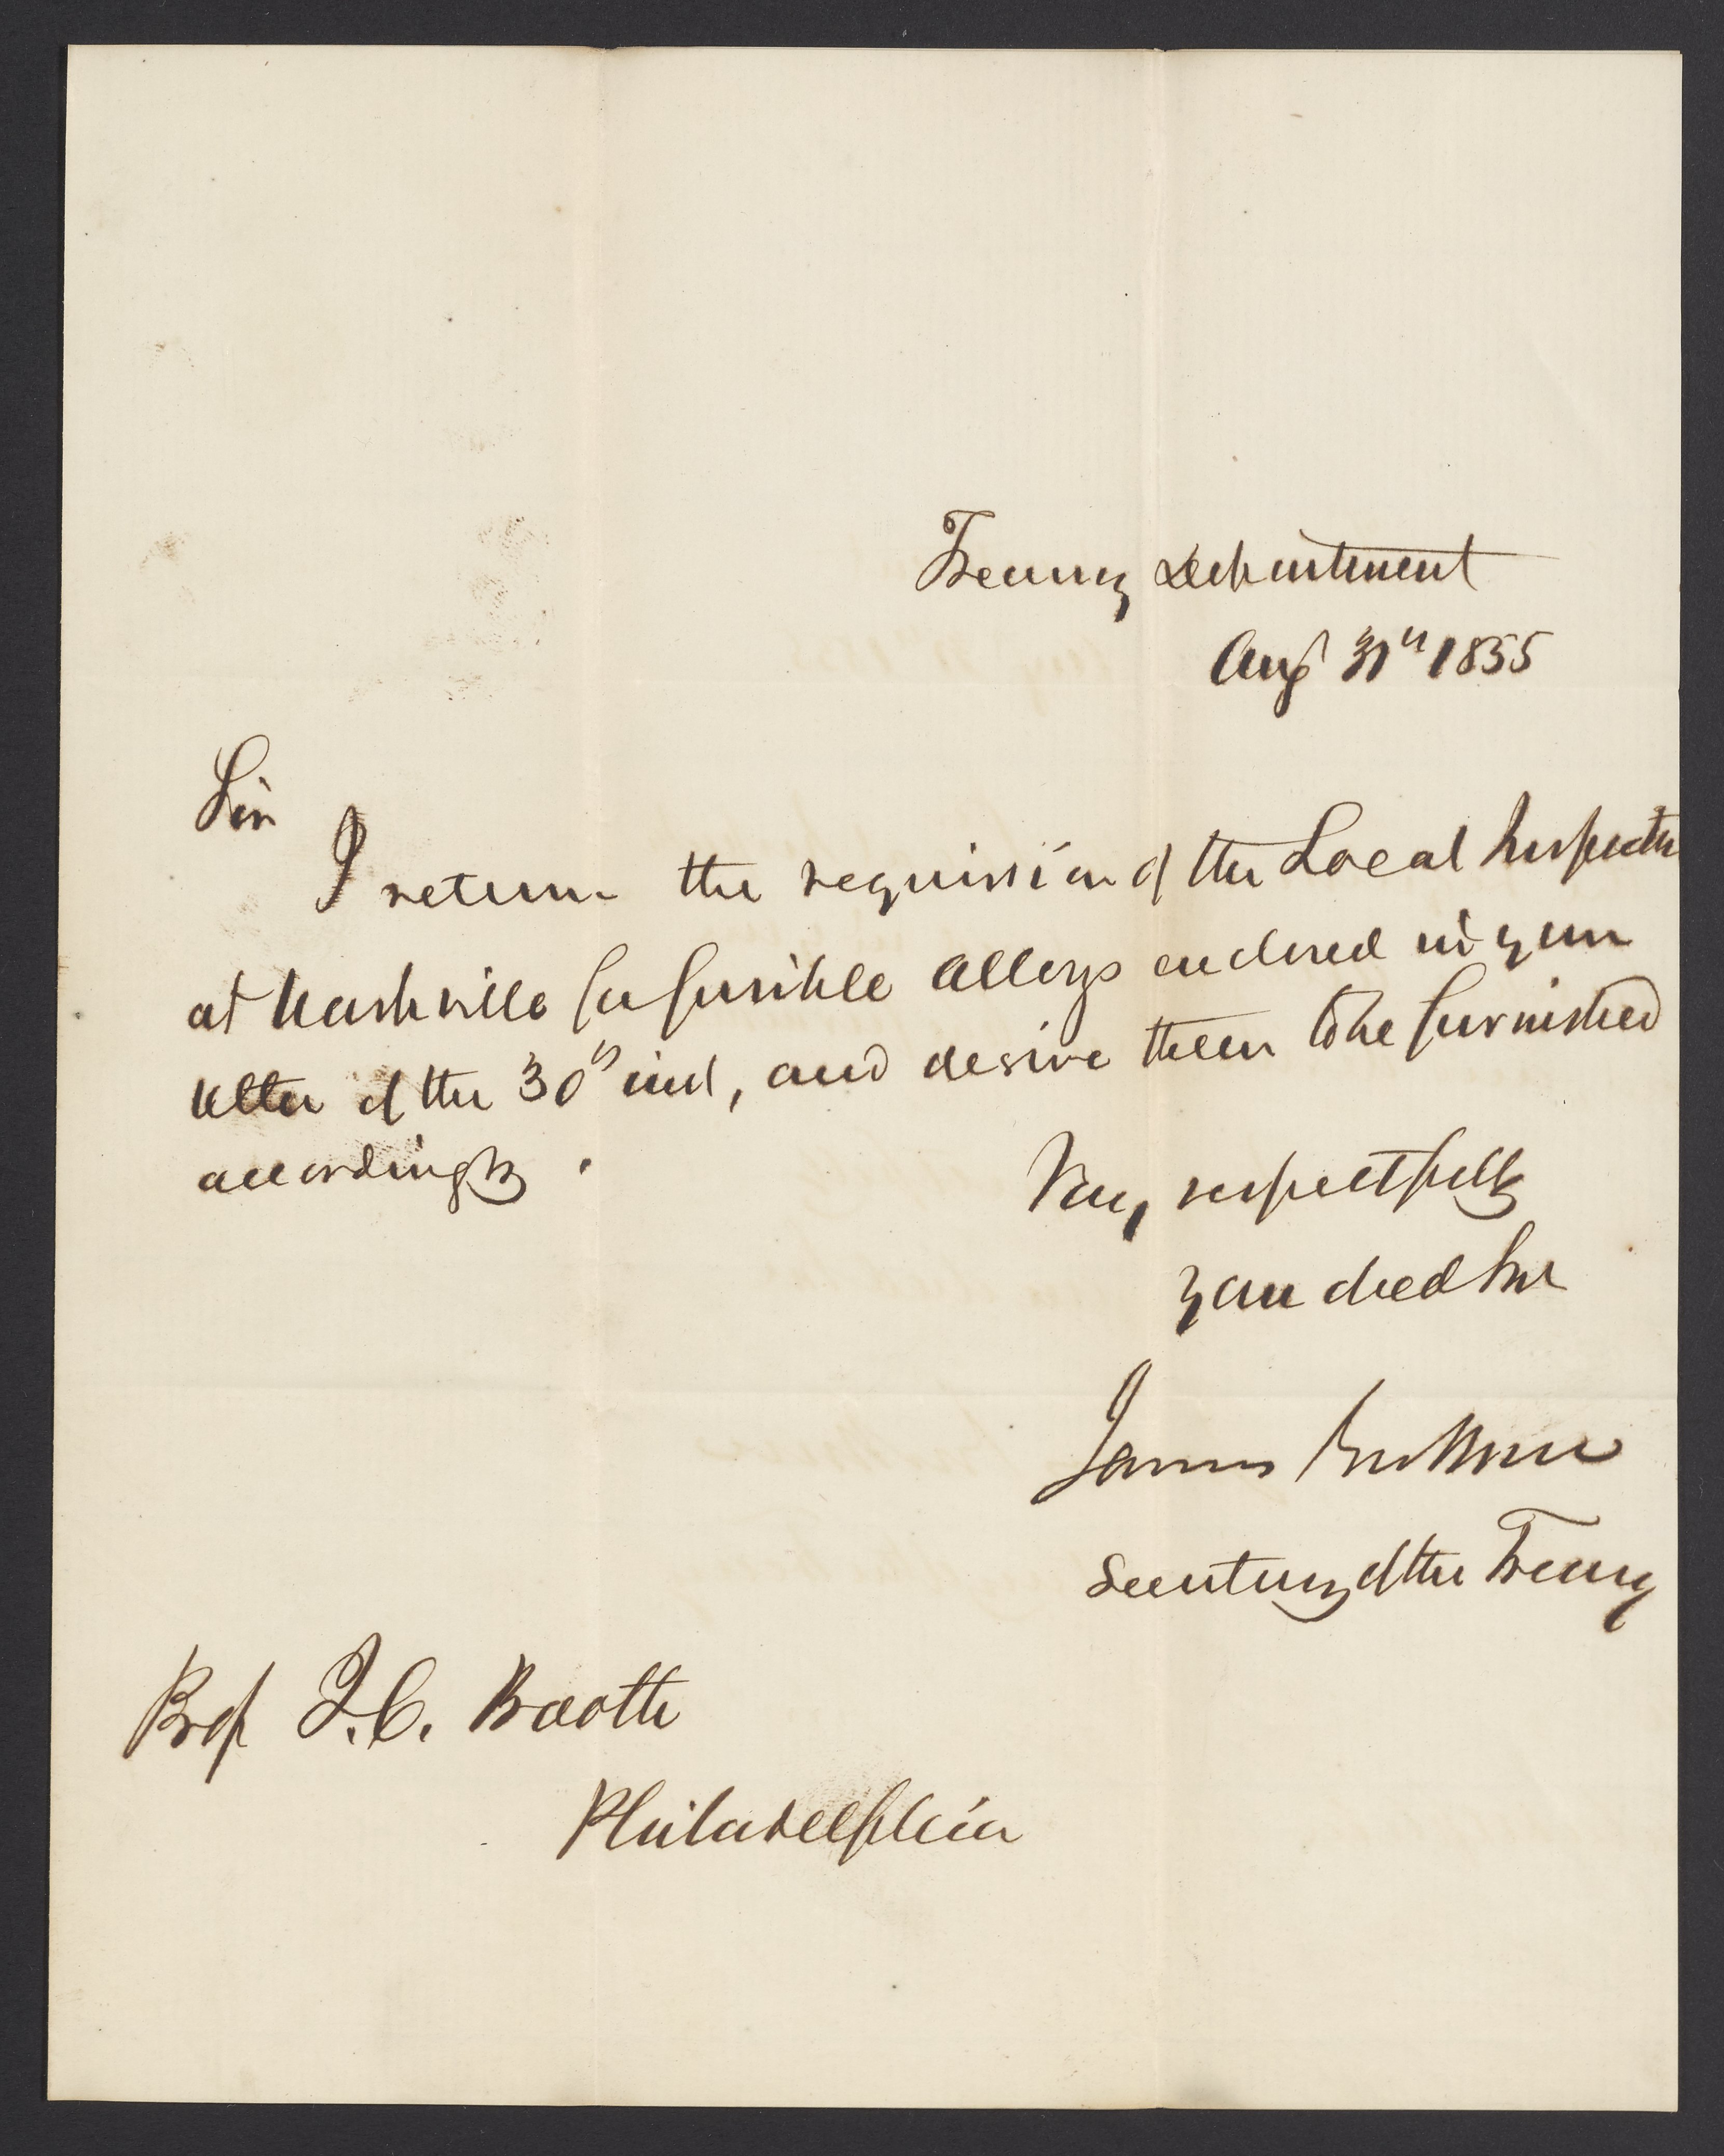 Treasury Department
Aug 31st 1855
Sir
I return the requisition of the Local Inspectors
at Nashville for fusible alloys enclosed in your
letter of the 30th inst, and desire them to be furnished
accordingly.
Very respectfully
your obed Svt
James Guthrie
Secretary of the Treasury
Prof J. C. Booth
Philadelphia